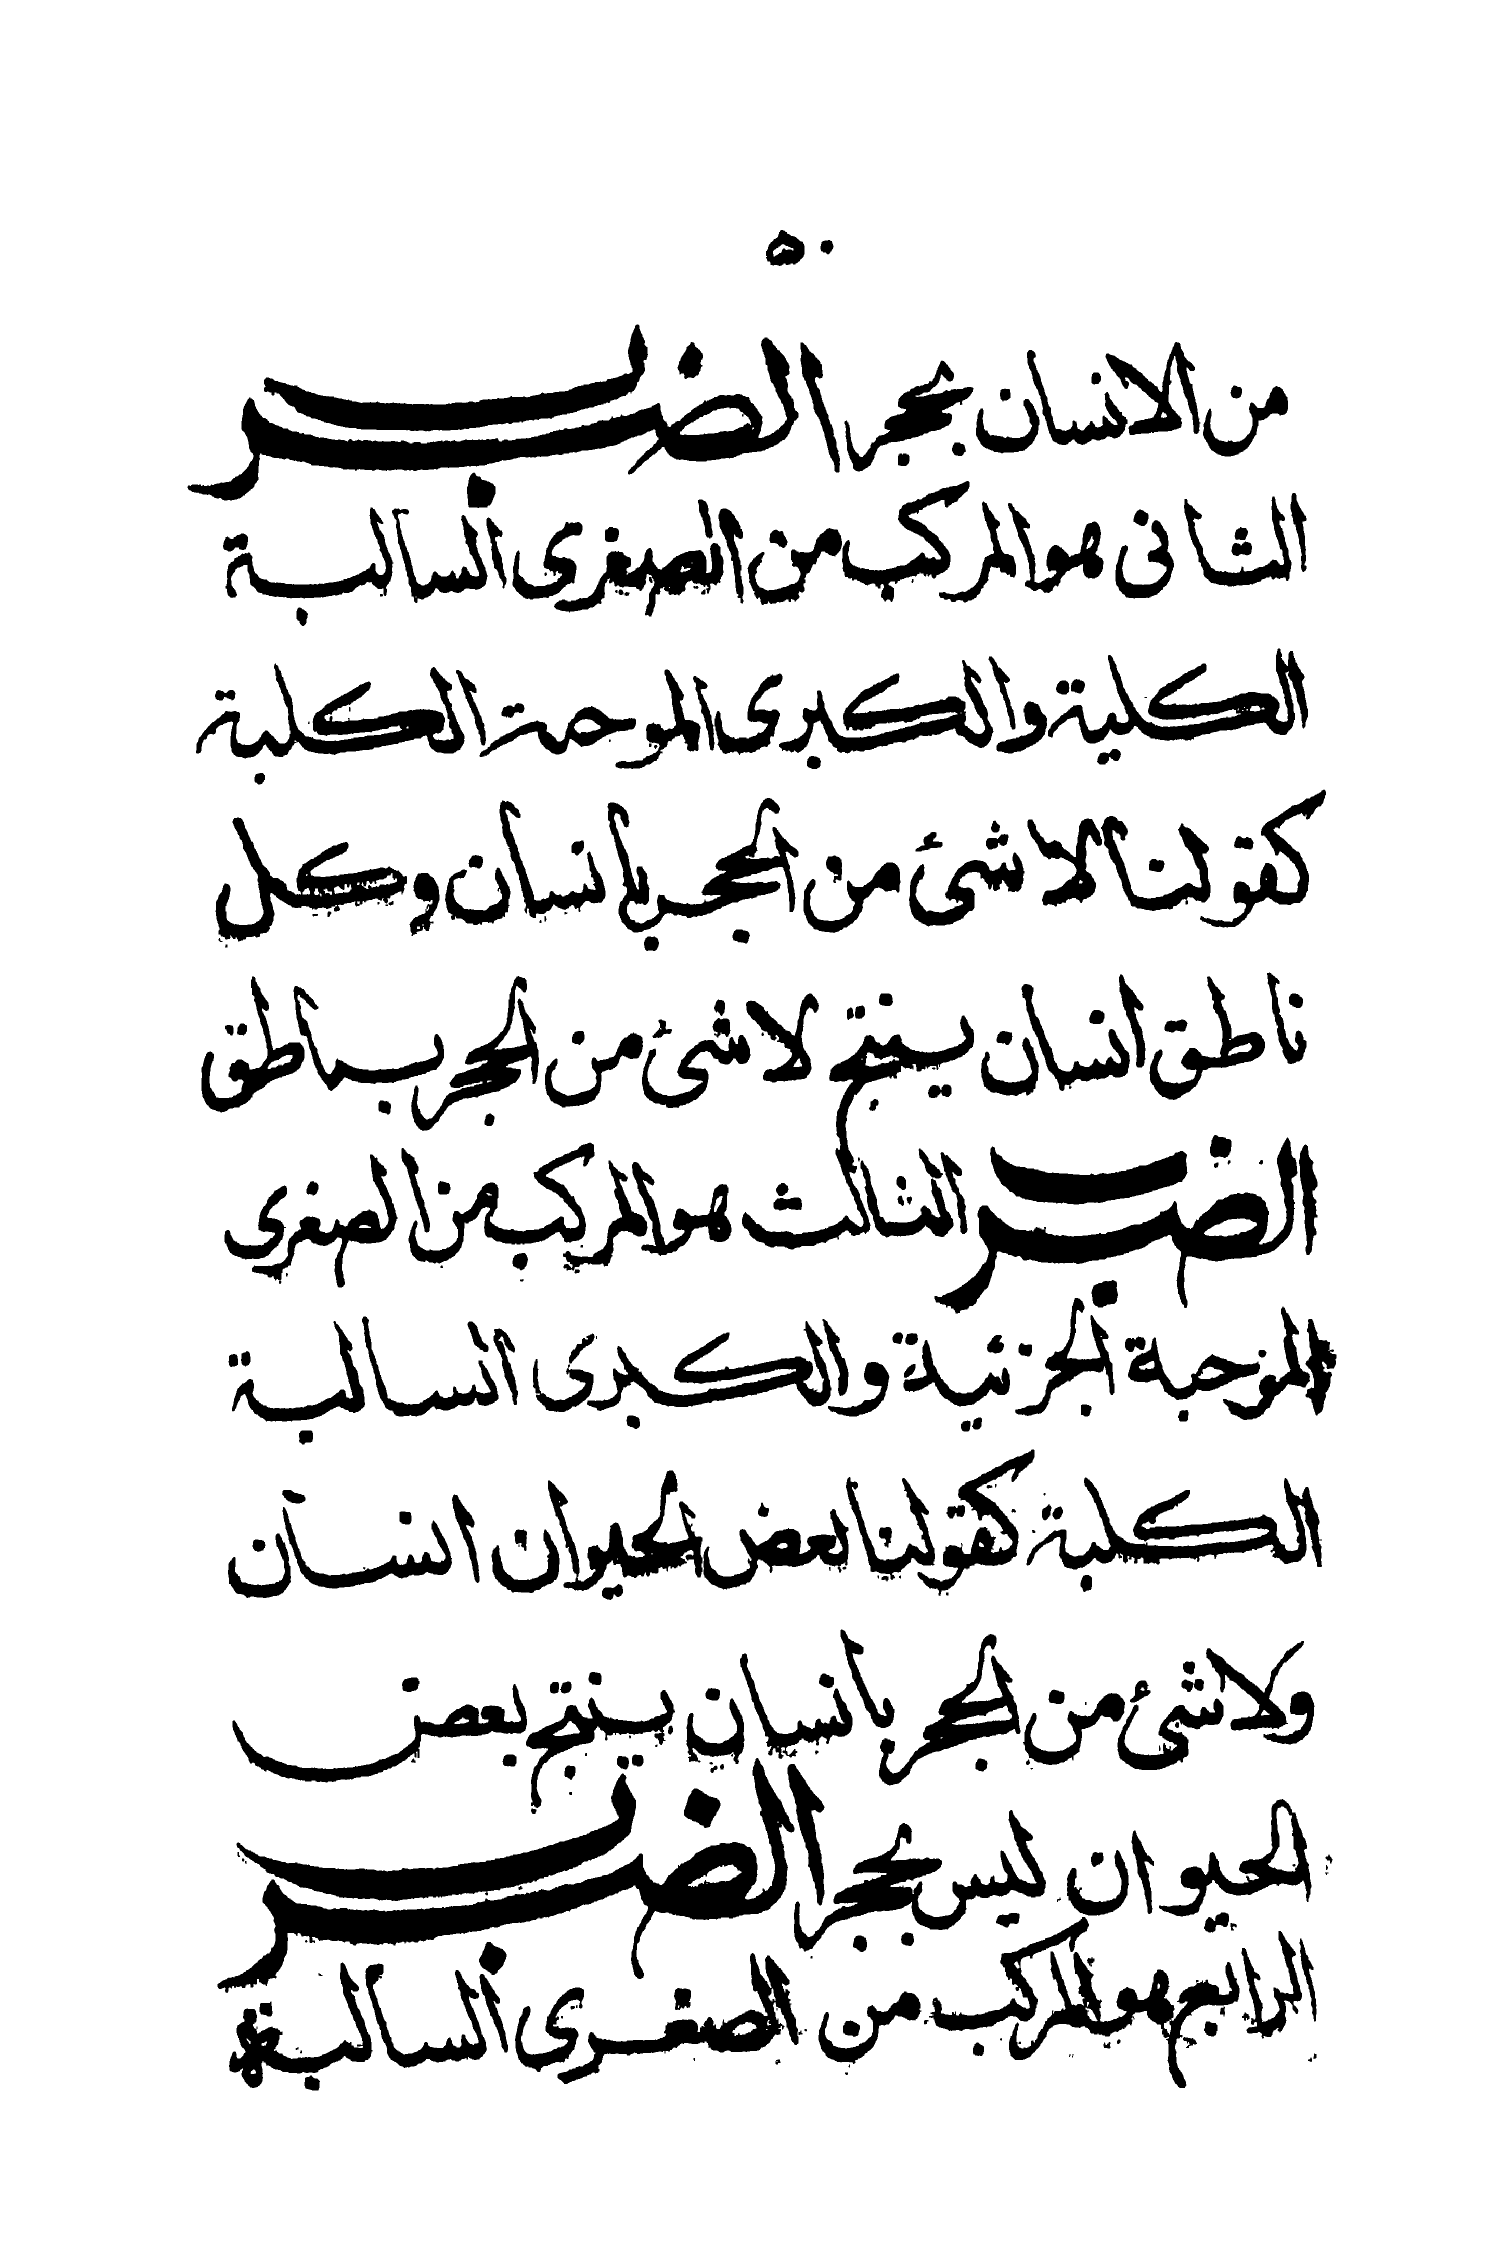 ٥٠
من الانسان بحجر الضرب
الثانى هو المركب من الصغرى السالبة
الكلية والكبرى الموجبة الكلية
كقولنا لاشئ من الحجر بانسان وكل
ناطق انسان ينتج لاشئ من الحجر بناطق
الضرب الثالث هو المركب من الصغرى
الموجبة الجزئية والكبرى السالبة
الكلية كقولنا بعض الحيوان انسان
ولاشئ من الحجر بانسان ينتج بعض
الحيوان ليس بحجر الضرب
الرابع هو المركب من الصغرى السالبة